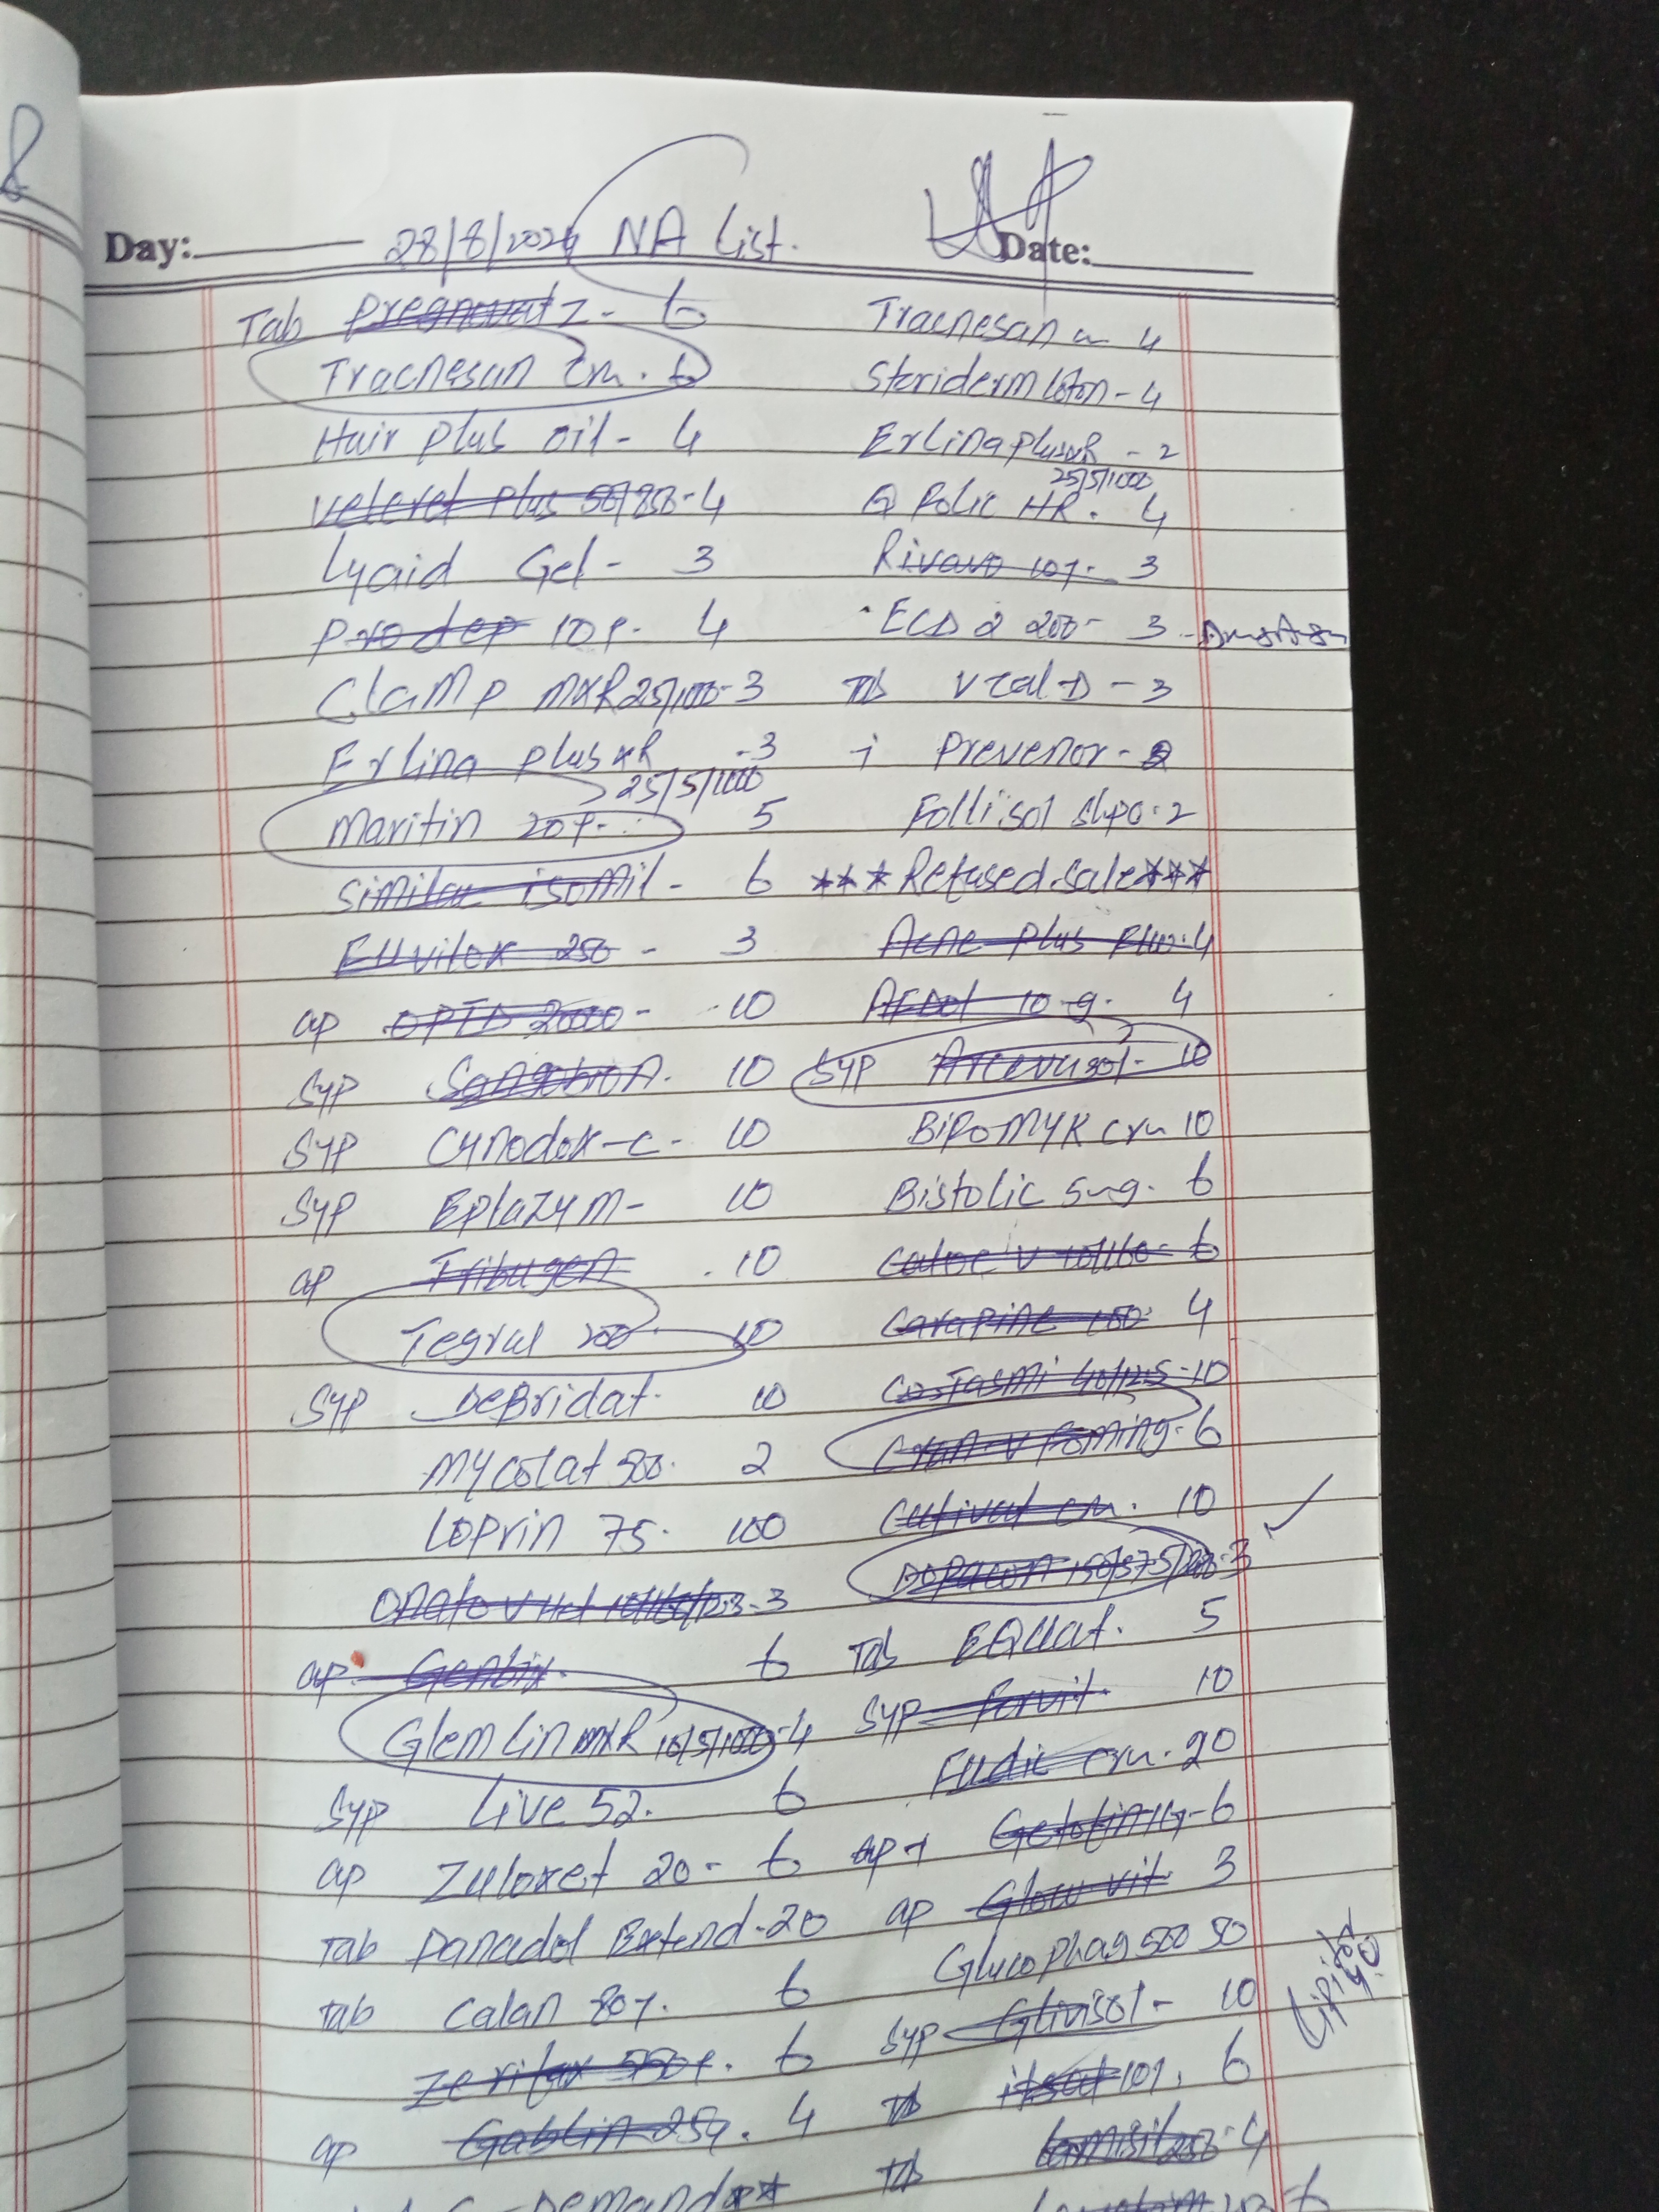 Day: 28/8/2024 NA List. Date:
Tab Pregnovat z - 6
Tracnesan cm. 6
Hair Plus oil - 4
velevel Plus 50/850 - 4
Lyaid Gel - 3
Prodep 10 4
Clamp MXR 25/1000 - 3
Erlina plus XR - 3
25/5/1000
Maritin 20 5
Similac isomil - 6
Euvilox 250 - 3
ap OPTD 20000 - 10
Syp Sangobion. 10
Syp Cynodox-c - 10
Syp Eplazym - 10
ap Tribugen 10
Tegral 200 10
Syp DeBridat. 10
Mycolat 500. 2
Loprin 75. 100
Onato V Hct - 3
ap Genbix. 6
Glemlin MXR 10/5/1000 - 4
Syp Live 52. 6
ap Zuloxet 20 - 6
Tab Panadol Extend - 20
Tab Calan 80 6
Zerifax 6
ap Gablin 25 4
Demand
Tracnesan 4
Steriderm Lotion - 4
Erlina plus XR - 2
25/5/1000
Q Polic HR. 4
Rivavo 10 3
ECD 2 200 - 3
Tab V cal-D - 3
i Prevenor - 2
Follisol 2
***Refused Sale***
Acne Plus 4
10 g. 4
Syp 10
BiFoMYK crm 10
Bistolic 5mg. 6
V 10/160 - 6
Carapine 4
Costasmi 40/12.5 - 10
Cran-V Foming - 6
Cutivat cm. 10
Dopacon - 3
Tab EQuat. 5
Syp Forvit. 10
Fudic crm. 20
ap Getofin 6
ap Glow vit 3
Glucophag 500 50
Syp Glivisol - 10
Tab itsat 10 6
Tab Lamisil 250 - 4
6